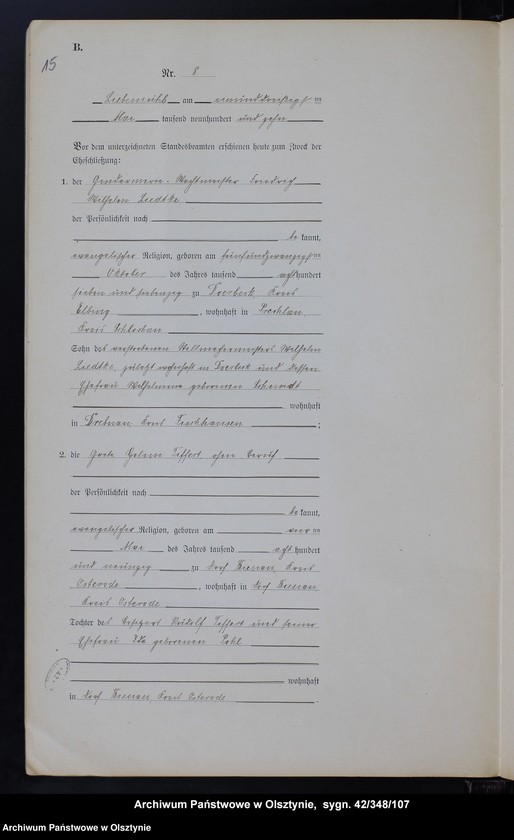 B.
15
Nr. 8
am neunundzwanzigsten
Mai tausend neunhundert und zehn
Vor dem unterzeichneten Standesbeamten erschienen heute zum Zweck der
Eheschließung:
1. der Gendarmerie-Wachtmeister Friedrich
Wilhelm Liedtke
der Persönlichkeit nach
be kannt,
evangelischer Religion, geboren am fünfundzwanzigsten
Oktober des Jahres tausend acht hundert
sieben und siebenzig zu Kreis
Elbing, wohnhaft in Prechlau,
Kreis Schlochau
Sohn des verstorbenen Stellmachermeisters Wilhelm
Liedtke, zuletzt wohnhaft in und dessen
Ehefrau Wilhelmine geborenen Schmidt
wohnhaft
in Kreis Fischhausen;
2. die Helene ohne Beruf
der Persönlichkeit nach
be kannt,
evangelischer Religion, geboren am
Mai des Jahres tausend acht hundert
und neunzig zu Dorf Kreis
Osterode, wohnhaft in Dorf
Kreis Osterode
Tochter des Besitzers Rudolf und seiner
Ehefrau Ida geborenen Pohl
wohnhaft
in Dorf Kreis Osterode.
Archiwum Państwowe w Olsztynie, sygn. 42/348/107
Archiwum Państwowe w Olsztynie